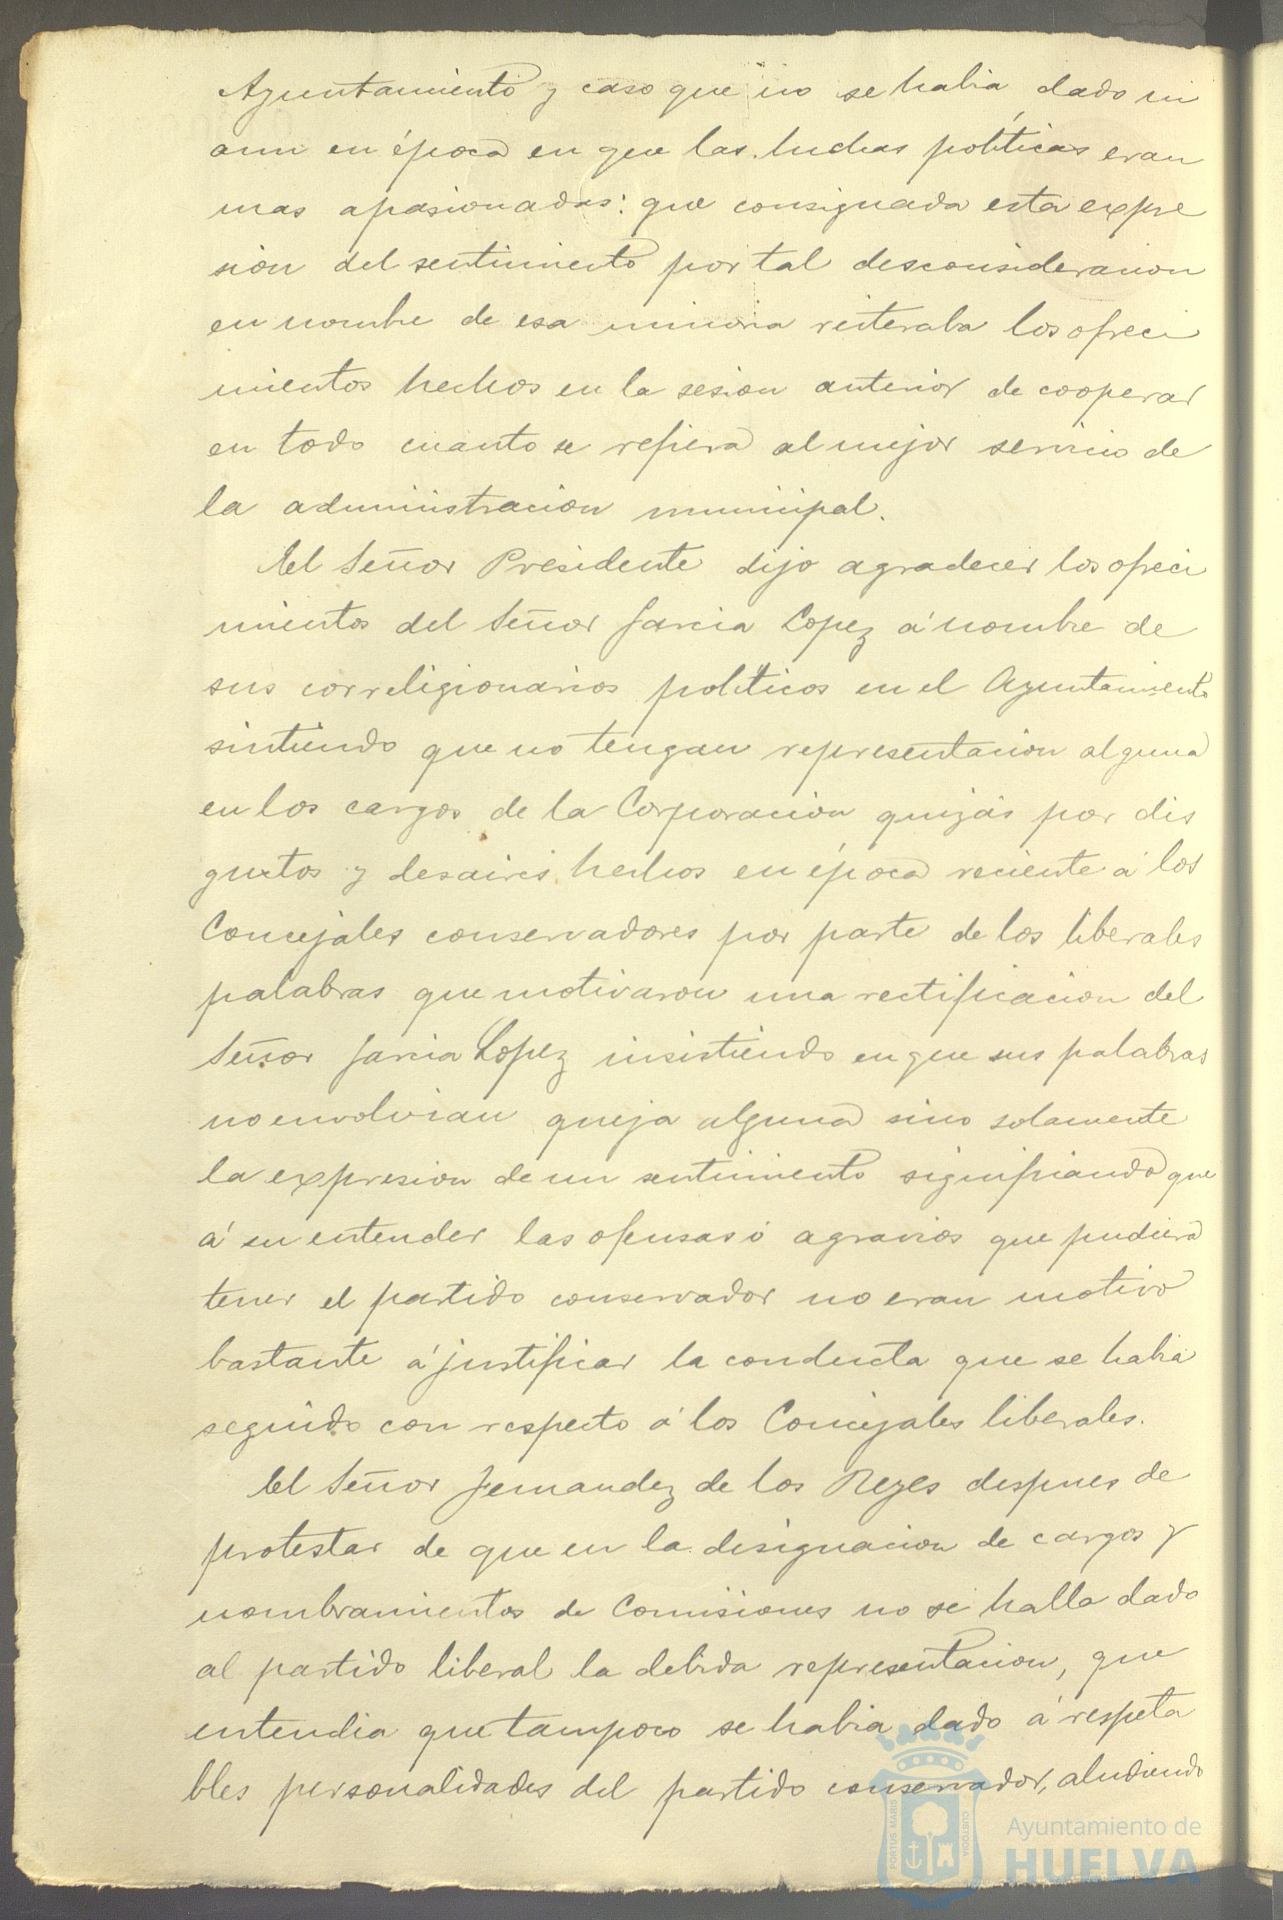 Ayuntamiento y caso que no se habia dado ni
aun en época en que las luchas políticas eran
mas apasionadas: que consignada esta expre
sion del sentimiento por tal desconsideracion
en nombre de esa minoria reiteraba los ofreci
mientos hechos en la sesion anterior de cooperar
en todo cuanto se refiera al mejor servicio de
la administracion municipal.
El Señor Presidente dijo agradecer los ofreci
mientos del Señor Garcia Lopez á nombre de
sus correligionarios políticos en el Ayuntamiento
sintiendo que no tengan representacion alguna
en los cargos de la Corporacion quizás por dis
gustos y desaires hechos en época reciente á los
Concejales conservadores por parte de los liberales
palabras que motivaron una rectificacion del
Señor Garcia Lopez insistiendo en que sus palabras
no envolvian queja alguna sino solamente
la expresion de un sentimiento significando que
á su entender las ofensas ó agravios que pudiera
tener el partido conservador no eran motivo
bastante á justificar la conducta que se habia
seguido con respecto á los Concejales liberales.
El Señor Fernandez de los Reyes despues de
protestar de que en la designacion de cargos y
nombramientos de Comisiones no se halla dado
al partido liberal la debida representacion, que
entendia que tampoco se habia dado á respeta
bles personalidades del partido conservador, aludiendo
PORTUS MARIS
CUSTODIA
Ayuntamiento de
HUELVA